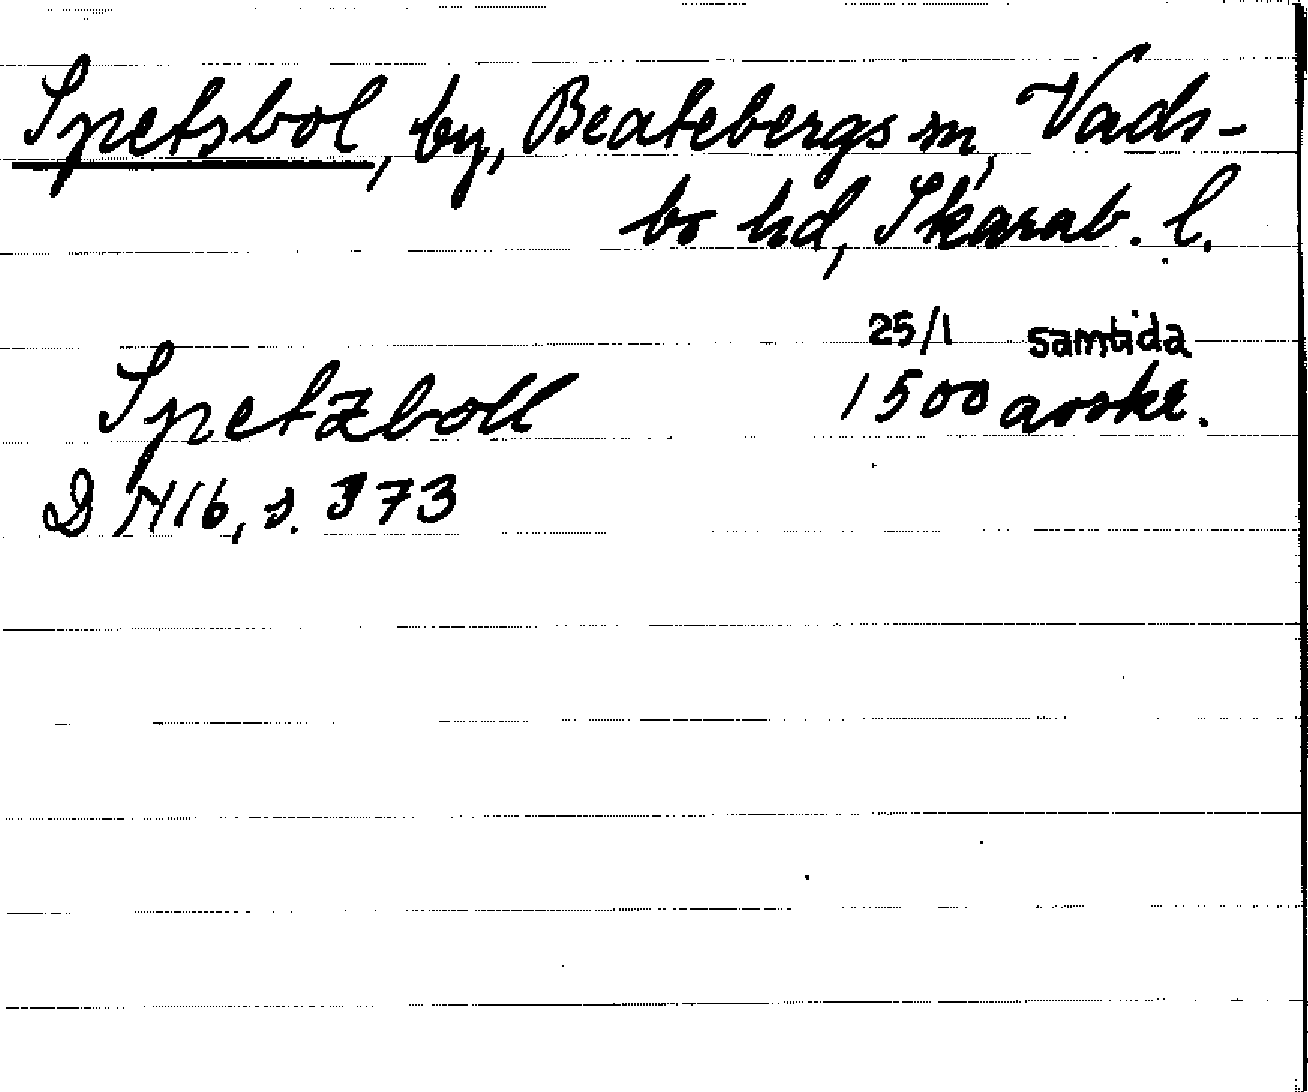 Spetsbol, by, Beatebergs sn, Vads-
bo hd, Skarab. l.
25/1 samtida
Spetzboll 1500 avskr.
D N16, s. 373